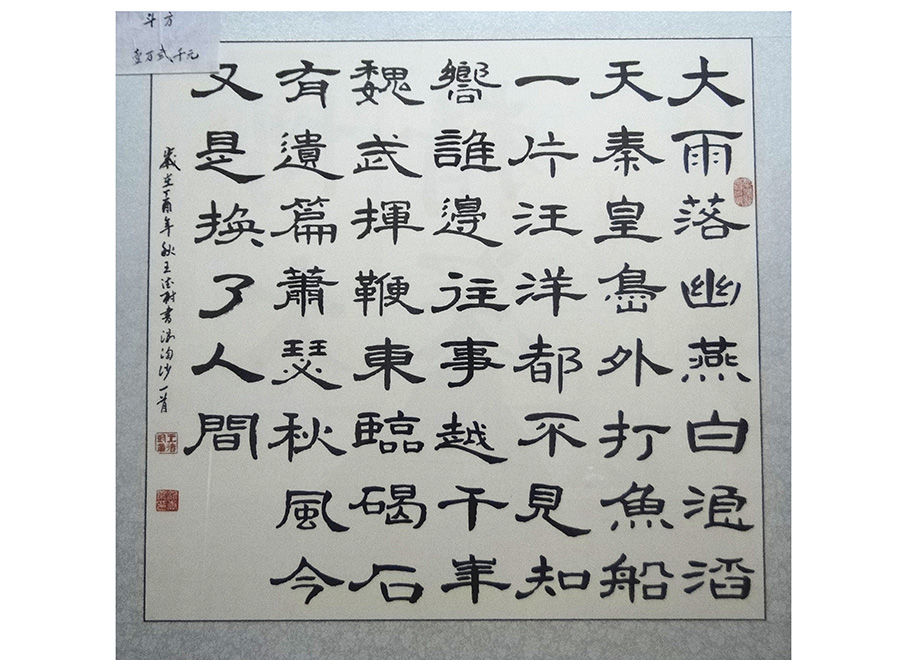 斗方
壹万弍千元
大雨落幽燕白浪滔
天秦皇島外打魚船
一片汪洋都不見知
嚮誰邊往事越千年
魏武揮鞭東臨碣石
有遺篇蕭瑟秋風今
又是換了人間
歲在丁酉年秋王書浪淘沙一首